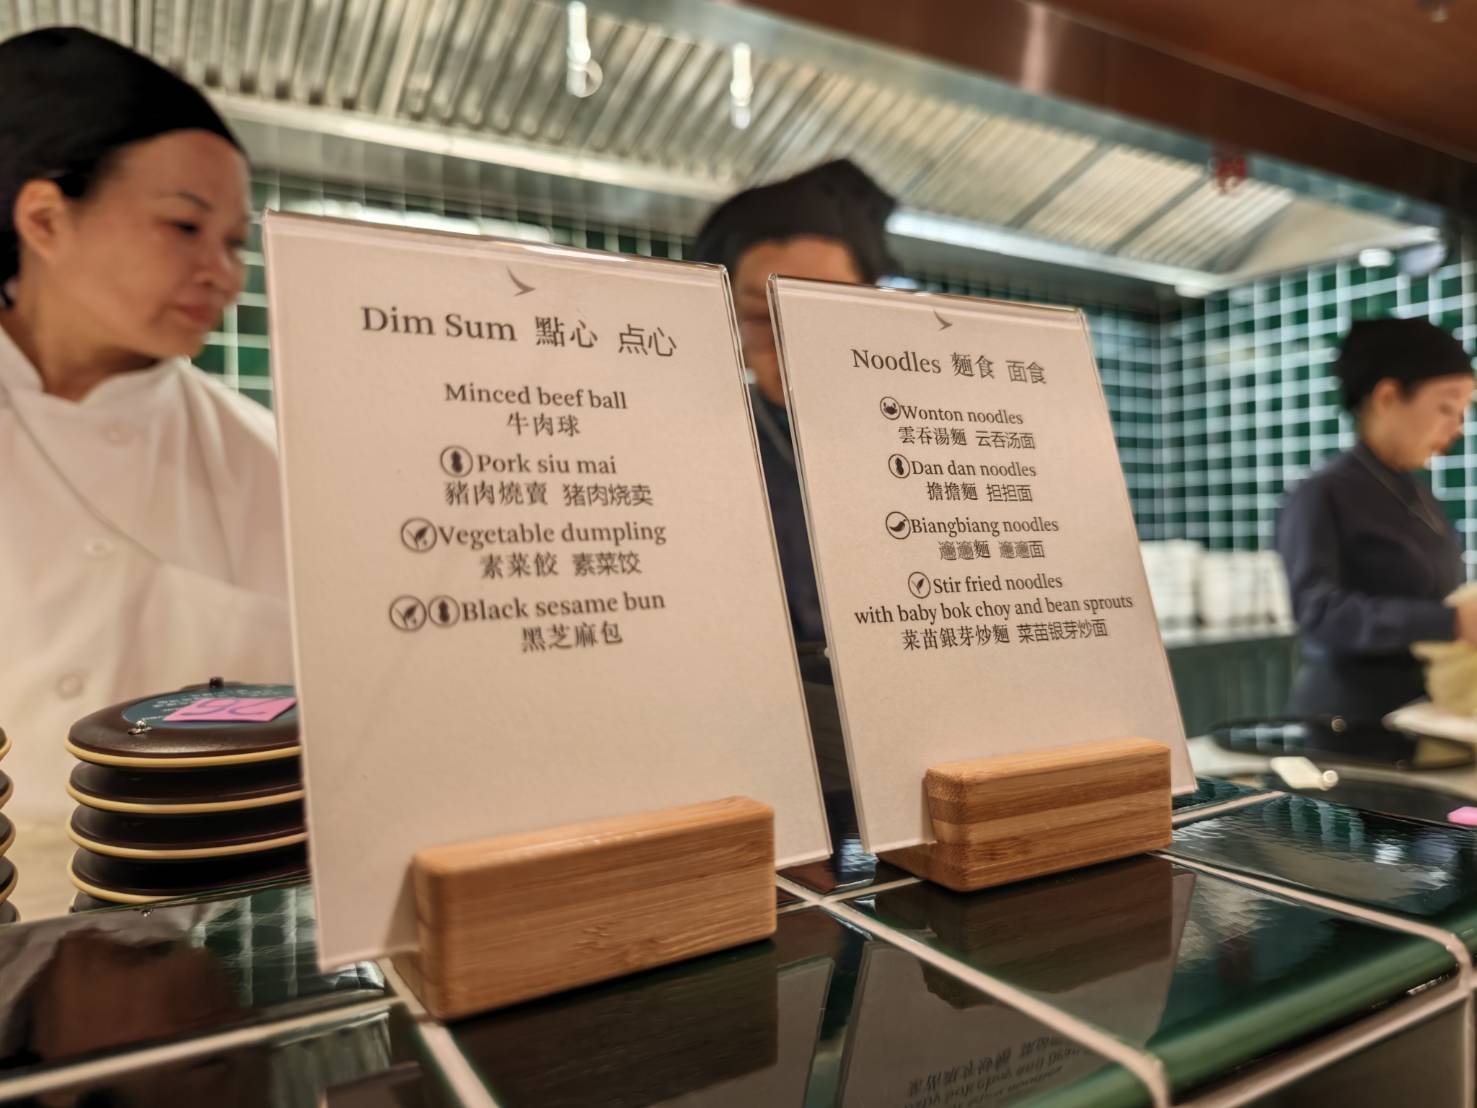 Dim Sum 點心 点心
Minced beef ball
牛肉球
Pork siu mai
豬肉燒賣 猪肉烧卖
Vegetable dumpling
素菜餃 素菜饺
Black sesame bun
黑芝麻包
Noodles 麵食 面食
Wonton noodles
雲吞湯麵 云吞汤面
Dan dan noodles
擔擔麵 担担面
Biangbiang noodles
麵 面
Stir fried noodles
with baby bok choy and bean sprouts
菜苗銀芽炒麵 菜苗银芽炒面